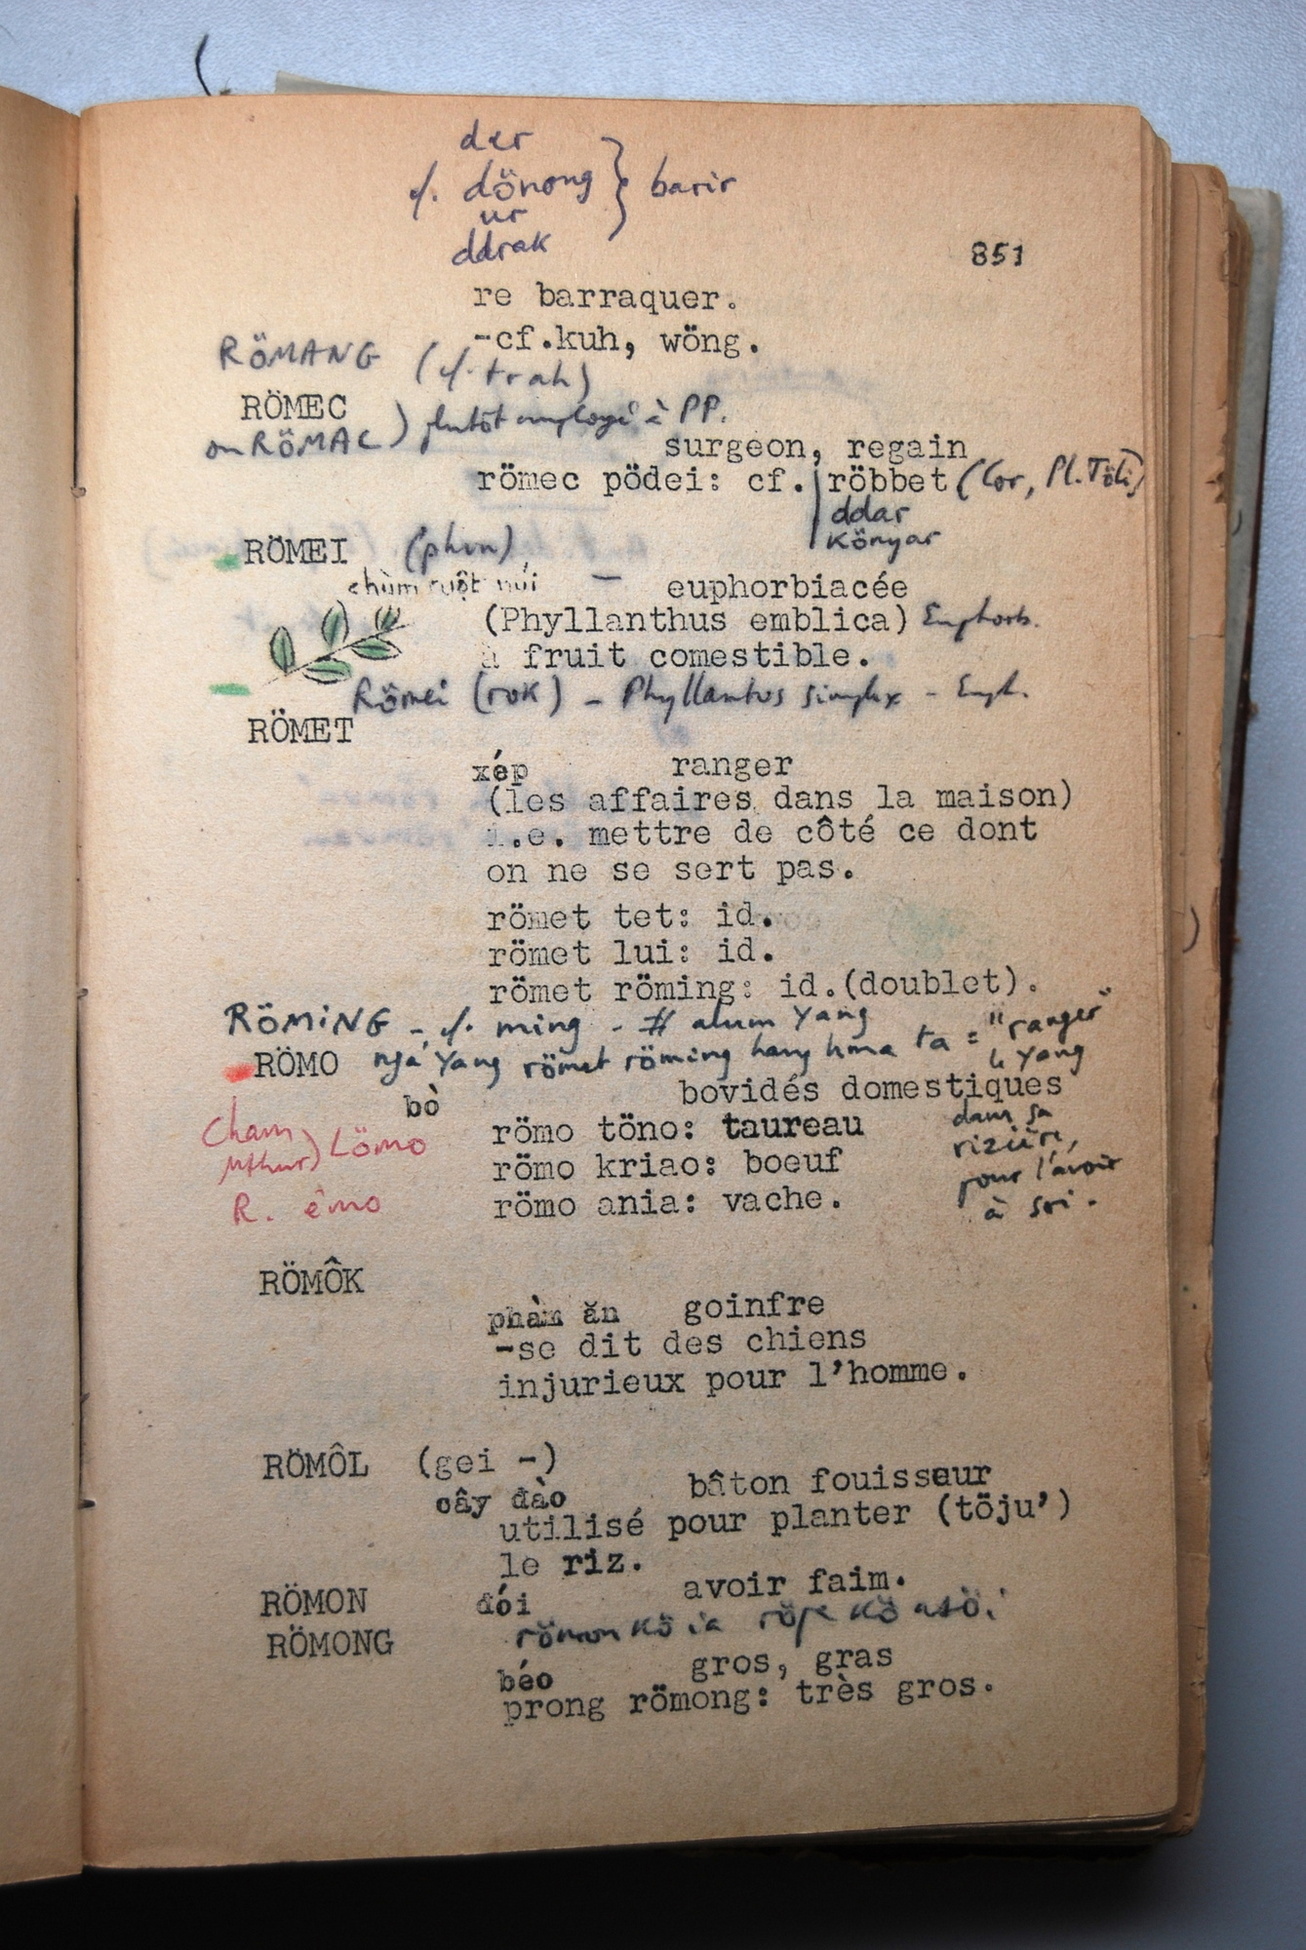 der
cf. dönong } barir
ur
ddrak
851
re barraquer.
-cf.kuh, wöng.
RÖMANG (cf. trah)
RÖMEC
ou RÖMAC) plutôt employé à PP.
surgeon, regain
römec pödei: cf. röbbet (Cor, Pl. Töli)
ddar
Könyar
RÖMEI (phun)
chùm ruột núi — euphorbiacée
(Phyllanthus emblica) Euphorb.
à fruit comestible.
Römei (rok) - Phyllantus simplex - Euph.
RÖMET
xép ranger
(les affaires dans la maison)
i.e. mettre de côté ce dont
on ne se sert pas.
römet tet: id.
römet lui: id.
römet röming: id.(doublet).
RÖMING - cf. ming - # alum Yang
RÖMO ngă Yang römet röming hang hma ta = "ranger"
le Yang
bò bovidés domestiques
dans sa
rizière,
pour l'avoir
à soi.
Cham
Mthur) Lömo
R. êmo
römo töno: taureau
römo kriao: boeuf
römo ania: vache.
RÖMÔK
phàm ăn goinfre
-se dit des chiens
injurieux pour l'homme.
RÖMÔL (gei -)
cây đào bâton fouisseur
utilisé pour planter (töju')
le riz.
RÖMON đói avoir faim.
römon kö ia
RÖMONG
béo gros, gras
prong römong: très gros.